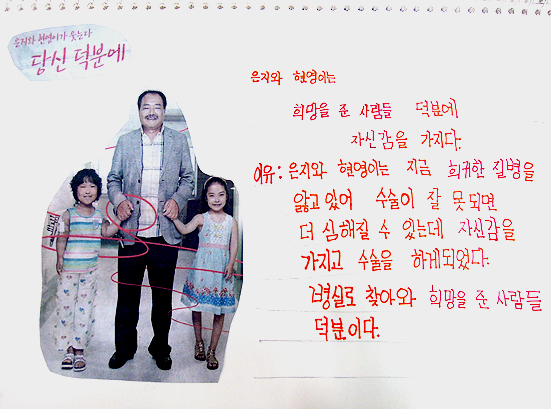 은지와 현영이가 웃는다
당신 덕분에
은지와 현영이는
희망을 준 사람들 덕분에
자신감을 가지다.
이유: 은지와 현영이는 지금 희귀한 질병을
앓고있어 수술이 잘 못되면
더 심해질 수 있는데 자신감을
가지고 수술을 하게되었다.
병실로 찾아와 희망을 준 사람들
덕분이다.